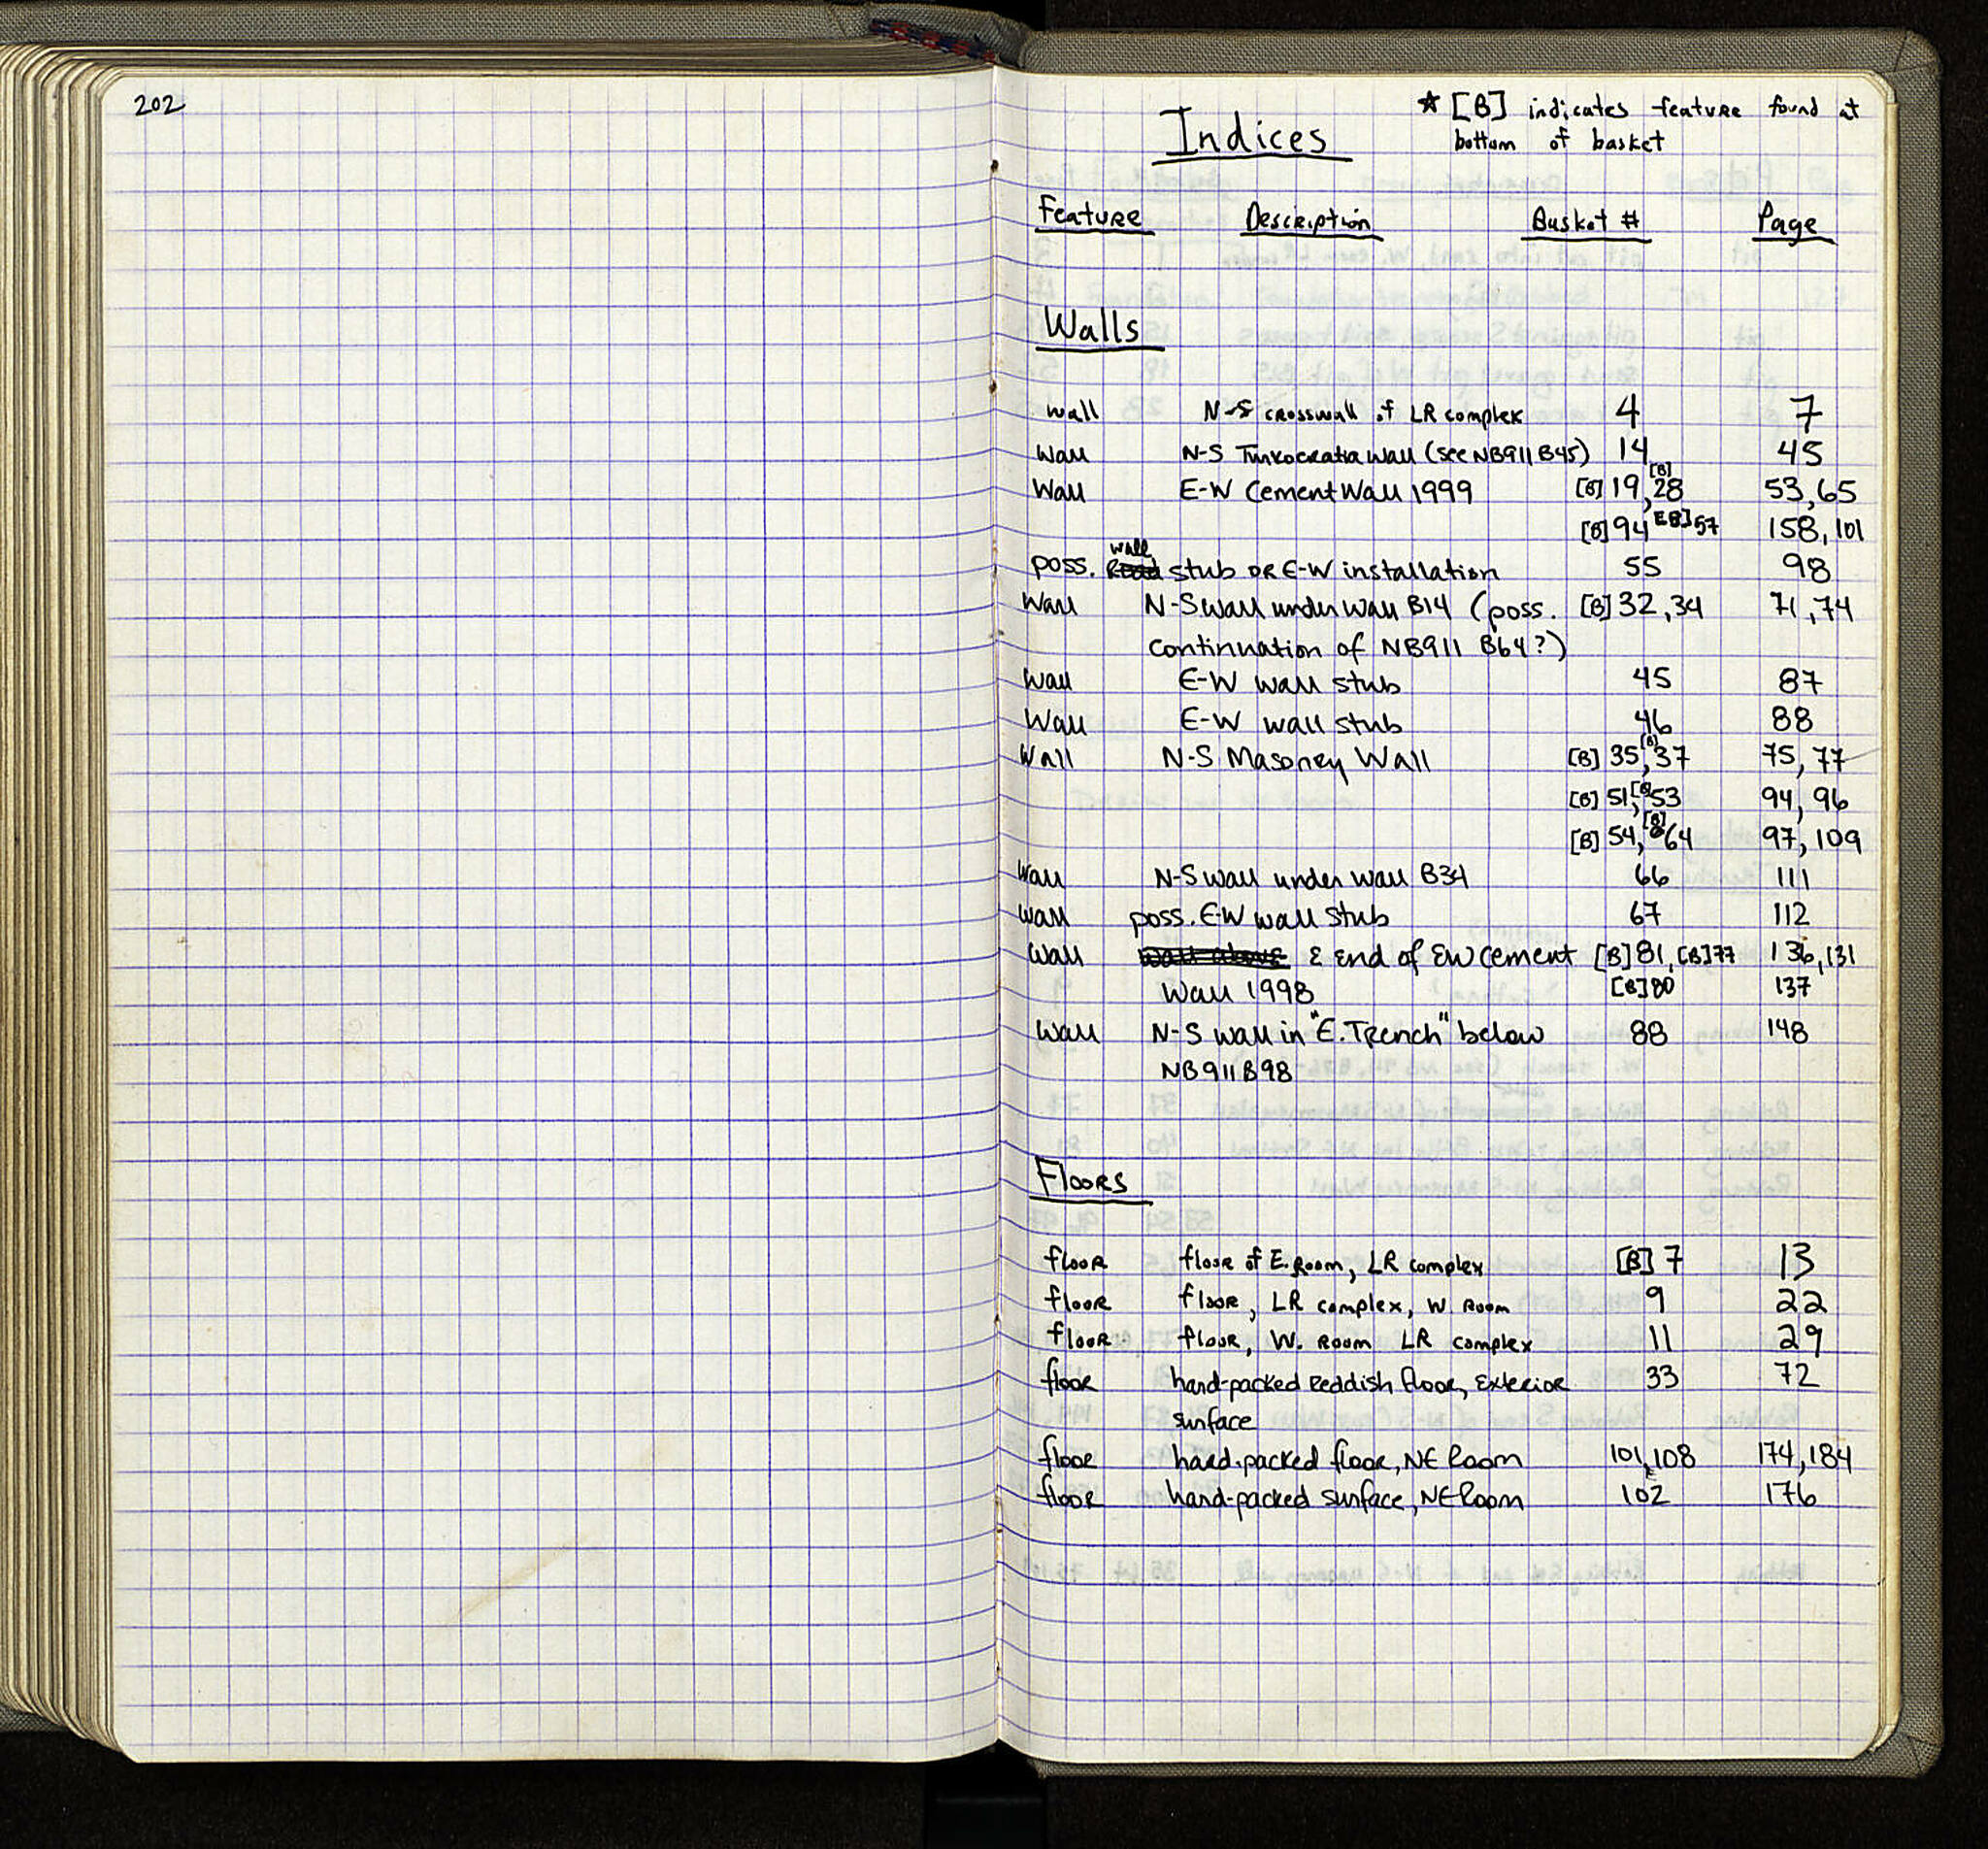 202
Indices
* [B] indicates feature found at
bottom of basket
Feature Description Basket # Page
Walls
wall N-S crosswall of LR complex 4 7
Wall N-S Turkocratia Wall (see NB911 B45) 14 45
Wall E-W Cement Wall 1999 [B] 19, [B] 28 53, 65
[B] 94 [B] 57 158, 101
poss. wall stub OR E-W installation 55 98
Wall N-S wall under wall B14 (poss. [B] 32, 34 71, 74
continuation of NB911 B64?)
Wall E-W wall stub 45 87
Wall E-W wall stub 46 88
Wall N-S Masonry Wall [B] 35, [B] 37 75, 77
[B] 51, [B] 53 94, 96
[B] 54, [B] 64 97, 109
Wall N-S wall under wall B34 66 111
wall poss. E-W wall stub 67 112
Wall wall above E end of EW cement [B] 81, [B] 77 136, 131
Wall 1998 [B] 80 137
Wall N-S wall in "E. Trench" below 88 148
NB911 B98
Floors
floor floor of E. Room, LR complex [B] 7 13
floor floor, LR complex, W. Room 9 22
floor floor, W. Room LR complex 11 29
floor hard-packed Reddish floor, Exterior 33 72
surface
floor hard-packed floor, NE Room 101, 108 174, 184
floor hard-packed surface, NE Room 102 176